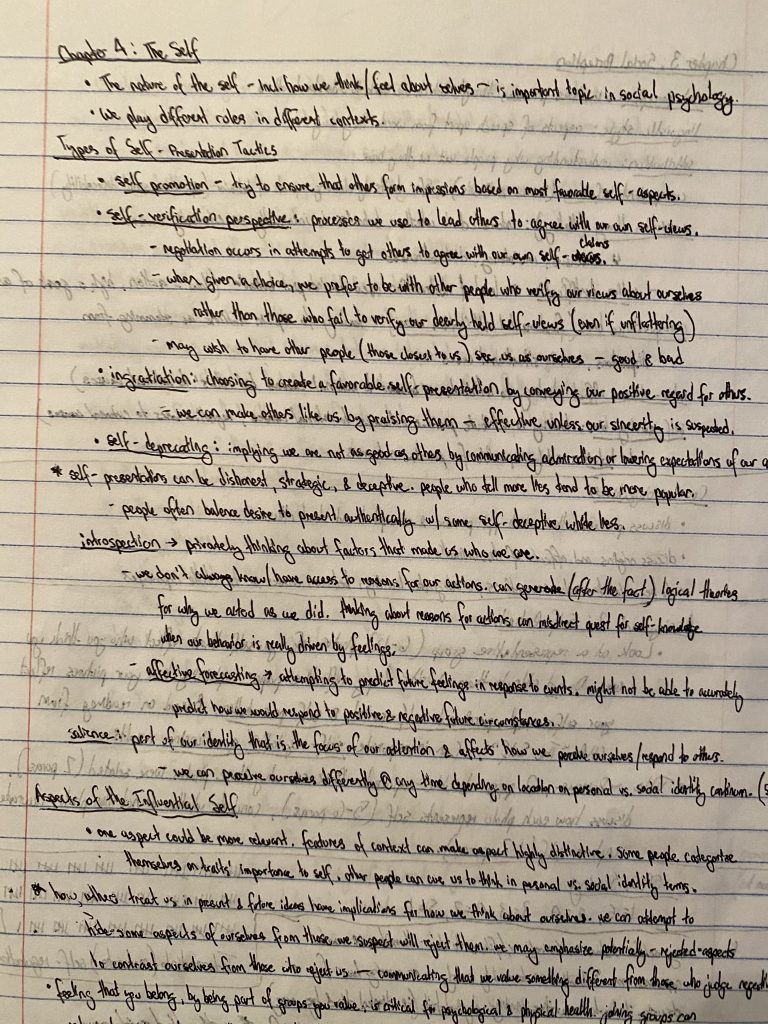 Chapter 4: The Self
• The nature of the self - Incl. how we think/feel about selves - is important topic in social psychology.
• We play different roles in different contexts.
Types of Self-Presentation Tactics
• self promotion - try to ensure that others form impressions based on most favorable self-aspects.
• self-verification perspective: processes we use to lead others to agree with our own self-views.
- negotiation occurs in attempts to get others to agree with our own self-claims.
- when given a choice, we prefer to be with other people who verify our views about ourselves
rather than those who fail to verify our dearly held self-views (even if unflattering)
- may wish to have other people (those closest to us) see us as ourselves - good & bad
• ingratiation: choosing to create a favorable self-presentation by conveying our positive regard for others.
- we can make others like us by praising them - effective unless our sincerity is suspected.
• self-deprecating: implying we are not as good as others by communicating admiration or lowering expectations of our
* self-presentations can be dishonest, strategic, & deceptive. people who tell more lies tend to be more popular.
- people often balence desire to present authentically w/ some self-deceptive white lies.
introspection → privately thinking about factors that made us who we are.
- we don't always know/have access to reasons for our actions. can generate (after the fact) logical theories
for why we acted as we did. thinking about reasons for actions can misdirect quest for self-knowledge
when our behavior is really driven by feelings.
- affective forecasting → attempting to predict future feelings in response to events. might not be able to accurately
predict how we would respond to positive & negative future circumstances.
salience: part of our identity that is the focus of our attention & affects how we perceive ourselves/respond to others.
- we can perceive ourselves differently @ any time depending on location on personal vs. social identity continuum.
Aspects of the Influential Self
• one aspect could be more relevant. features of context can make aspect highly distinctive. some people categorize
themselves on traits' importance to self. other people can cue us to think in personal vs. social identity terms.
* how others treat us in present & future ideas have implications for how we think about ourselves. we can attempt to
hide some aspects of ourselves from those we suspect will reject them. we may emphasize potentially-rejected-aspects
to contrast ourselves from those who reject us - communicating that we value something different from those who judge
• feeling that you belong, by being part of groups you value, is critical for psychological & physical health. joining groups can